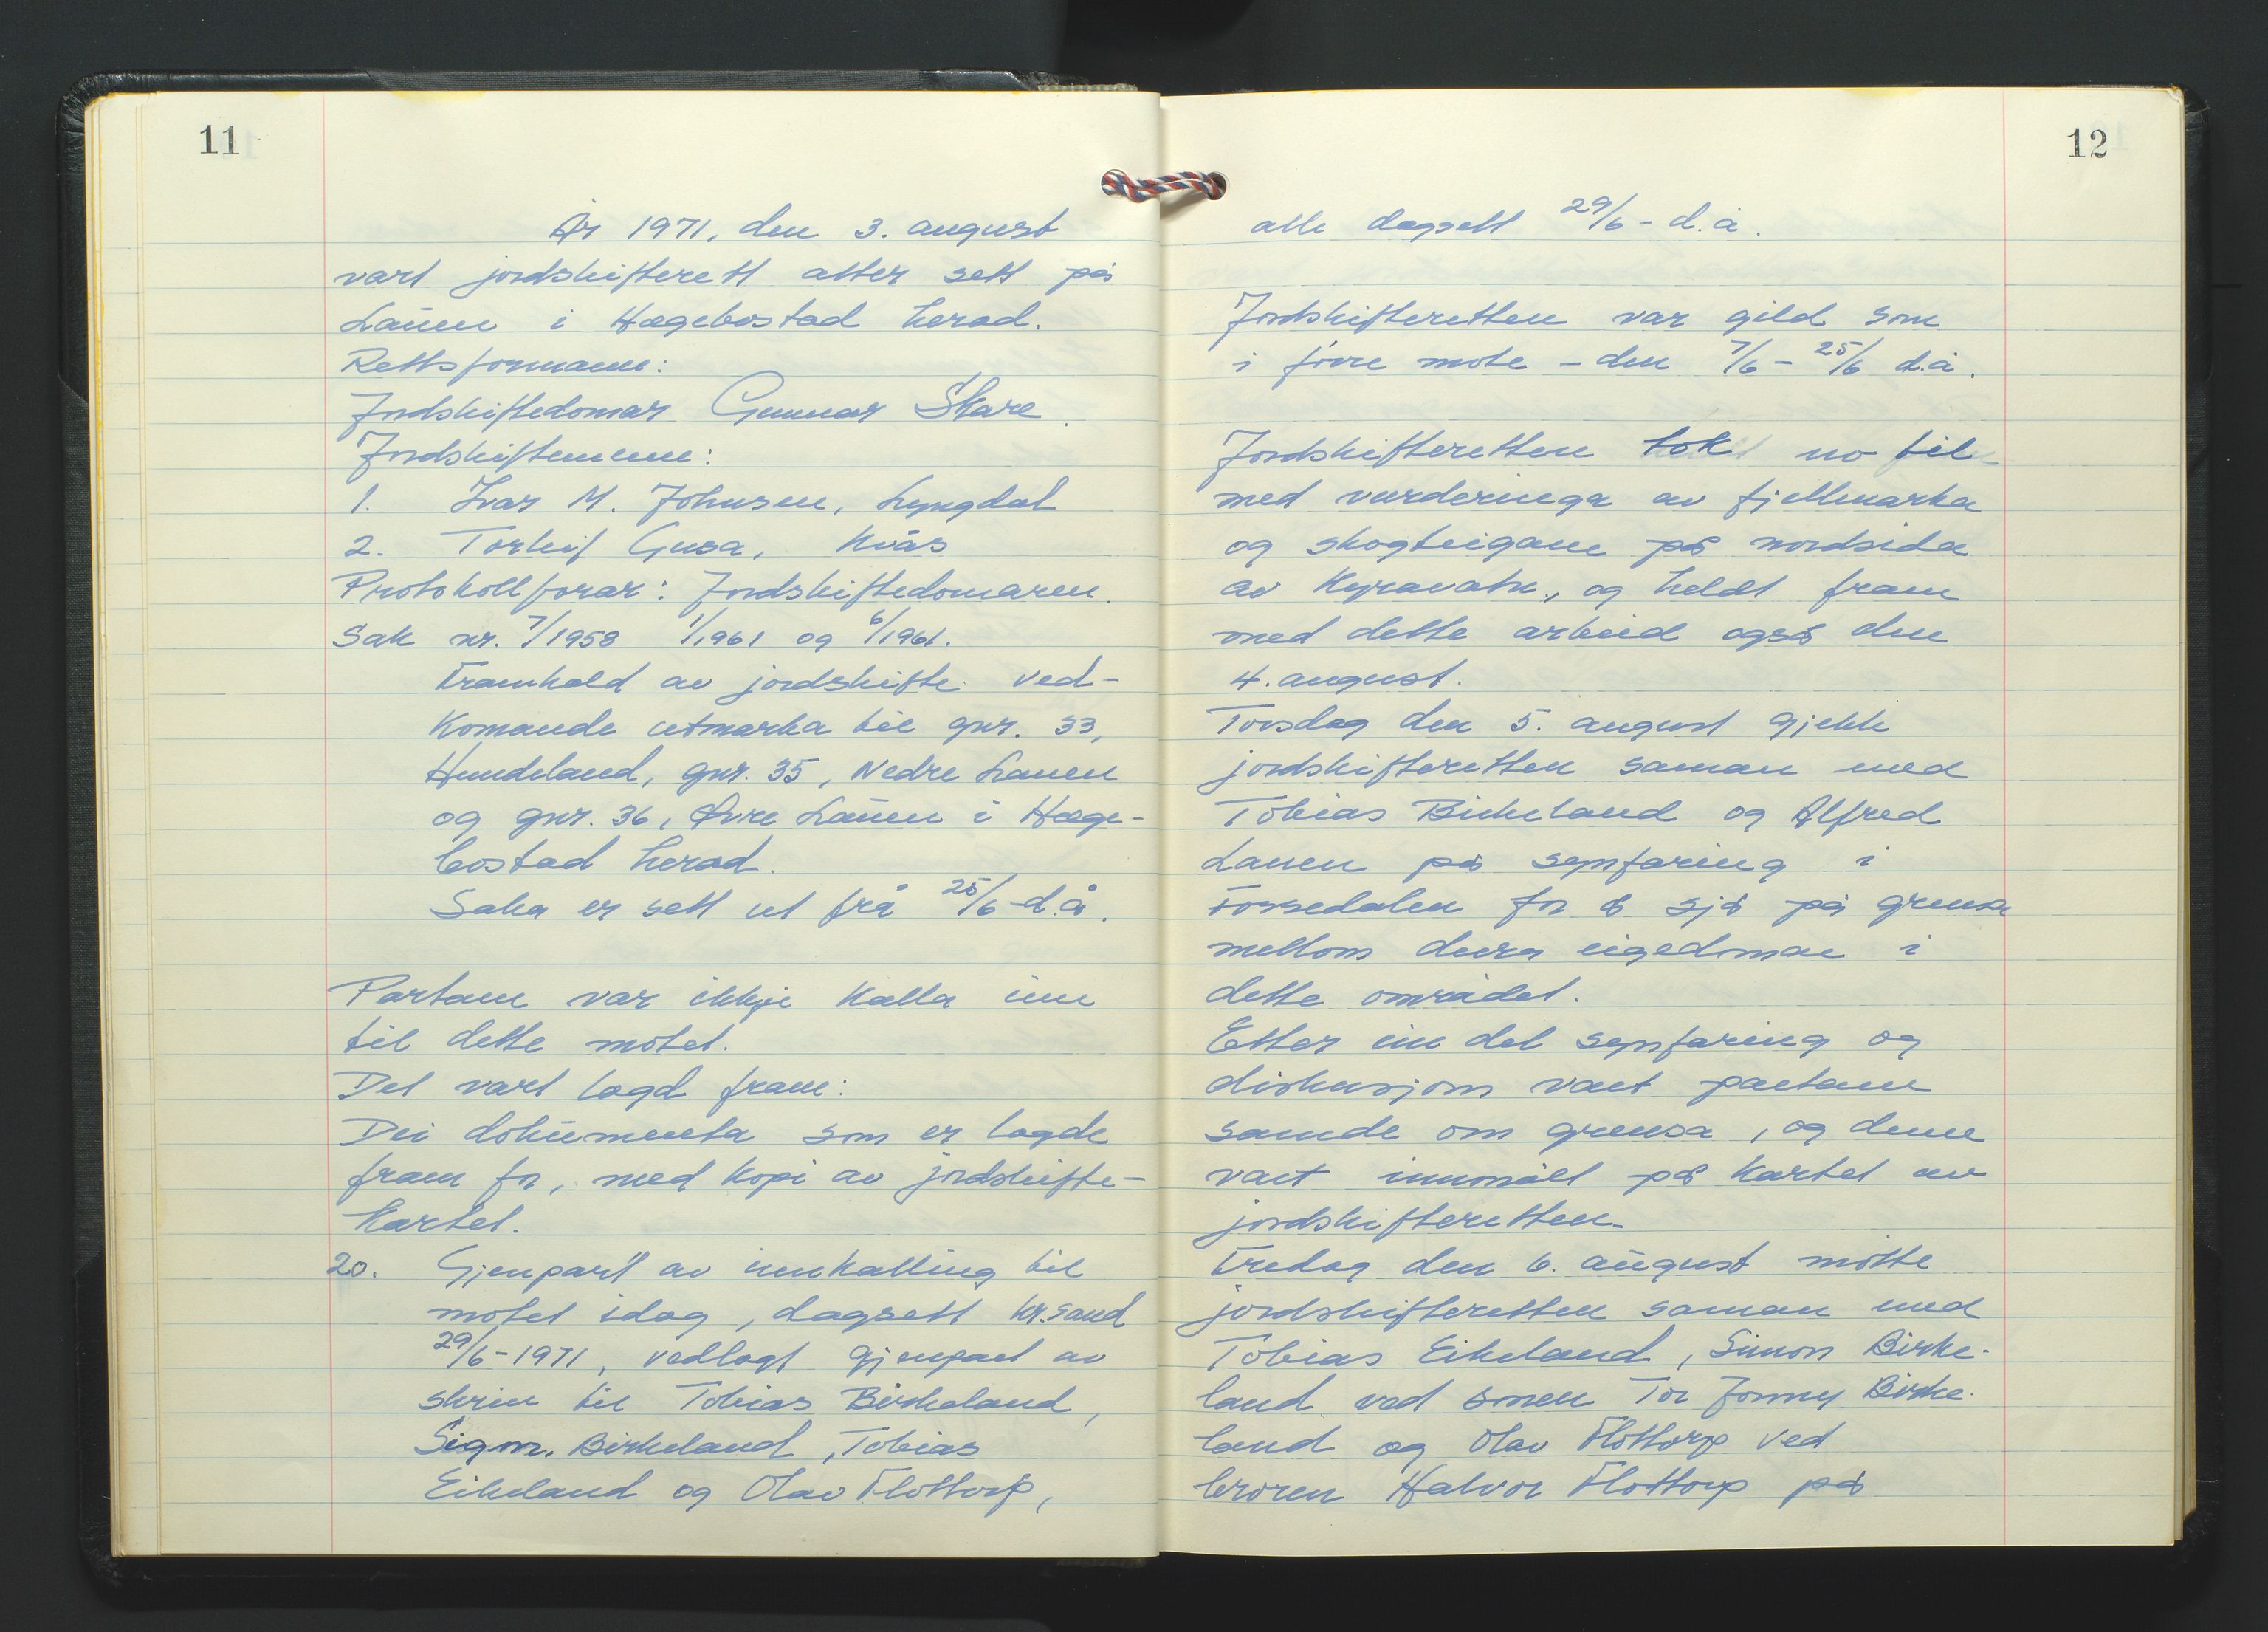 11
År 1971, den 3. august
vart jordskifterett atter sett på
Lauen i Hægebostad herad.
Rettsformann:
Jordskiftedomar Gunnar Skare.
Jordskiftemenn:
1. Ivar M. Johnsen, Lyngdal
2. Torleif Gusa, Kvås
Protokollførar: Jordskiftedomaren.
Sak nr. 7/1958 1/1961 og 6/1961.
Framhald av jordskifte ved-
komande utmarka til gnr. 33,
Hundeland, gnr. 35, Nedre Lauen
og gnr. 36, Øvre Lauen i Hæge-
bostad herad.
Saka er sett ut frå 25/6 d.å.
Partane var ikkje kalla inn
til dette møtet.
Det vart lagd fram:
Dei dokumenta som er lagde
fram før, med kopi av jordskifte-
kartet.
20. Gjenpart av innkalling til
møtet idag, dagsett Kr.sand
29/6-1971, vedlagt gjenpart av
skriv til Tobias Birkeland,
Sigm. Birkeland, Tobias
Eikeland og Olav Flottorp,
12
alle dagsett 29/6- d.å.
Jordskifteretten var gild som
i førre møte - den 7/6 - 25/6 d.å.
Jordskifteretten tok no til
med vurderinga av fjellmarka
og skogteigane på nordsida
av Kyravatn, og heldt fram
med dette arbeid også den
4. august.
Torsdag den 5. august gjekk
jordskifteretten saman med
Tobias Birkeland og Alfred
Lauen på synfaring i
Fossedalen for å sjå på grensa
mellom deira eigedomar i
dette området.
Etter ein del synfaring og
diskusjon vart partane
samde om grensa, og denne
vart innmålt på kartet av
jordskifteretten.
Fredag den 6. august møtte
jordskifteretten saman med
Tobias Eikeland, Simon Birke-
land ved sonen Tor Jonny Birke-
land og Olav Flottorp ved
broren Halvor Flottorp på